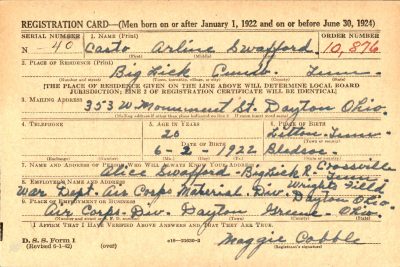 REGISTRATION CARD—(Men born on or after January 1, 1922 and on or before June 30, 1924)
SERIAL NUMBER 1. NAME (Print) ORDER NUMBER
N - 40 Casto Arline Swafford 10,876
(First) (Middle) (Last)
2. PLACE OF RESIDENCE (Print)
Big Lick Cumb. Tenn.
(Number and street) (Town, township, village, or city) (County) (State)
[THE PLACE OF RESIDENCE GIVEN ON THE LINE ABOVE WILL DETERMINE LOCAL BOARD
JURISDICTION; LINE 2 OF REGISTRATION CERTIFICATE WILL BE IDENTICAL]
3. MAILING ADDRESS
353 W. Monument St. Dayton Ohio.
[Mailing address if other than place indicated on line 2. If same insert word same]
4. TELEPHONE 5. AGE IN YEARS 6. PLACE OF BIRTH
20 Litton - Tenn -
DATE OF BIRTH (Town or county)
6 - 2 - 1922 Bledsoe -
(Exchange) (Number) (Mo.) (Day) (Yr.) (State or country)
7. NAME AND ADDRESS OF PERSON WHO WILL ALWAYS KNOW YOUR ADDRESS Crossville
Alice Swafford - Big Lick R - Tenn -
8. EMPLOYER'S NAME AND ADDRESS Wright Field
War Dept. - Air Corps Material. Div. Dayton Ohio -
9. PLACE OF EMPLOYMENT OR BUSINESS
Air Corps - Div. Dayton Greene - Ohio.
(Number and street or R. F. D. number) (Town) (County) (State)
I AFFIRM THAT I HAVE VERIFIED ABOVE ANSWERS AND THAT THEY ARE TRUE.
D. S. S. Form 1
(Revised 6-1-42) (over) Maggie Cobble
(Registrant's signature)